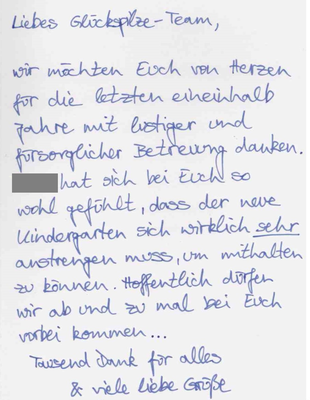 Liebes Glückspilze-Team,
wir möchten Euch von Herzen
für die letzten eineinhalb
Jahre mit lustiger und
fürsorglicher Betreuung danken.
hat sich bei Euch so
wohl gefühlt, dass der neue
Kindergarten sich wirklich sehr
anstrengen muss, um mithalten
zu können. Hoffentlich dürfen
wir ab und zu mal bei Euch
vorbei kommen...
Tausend Dank für alles
& viele liebe Grüße